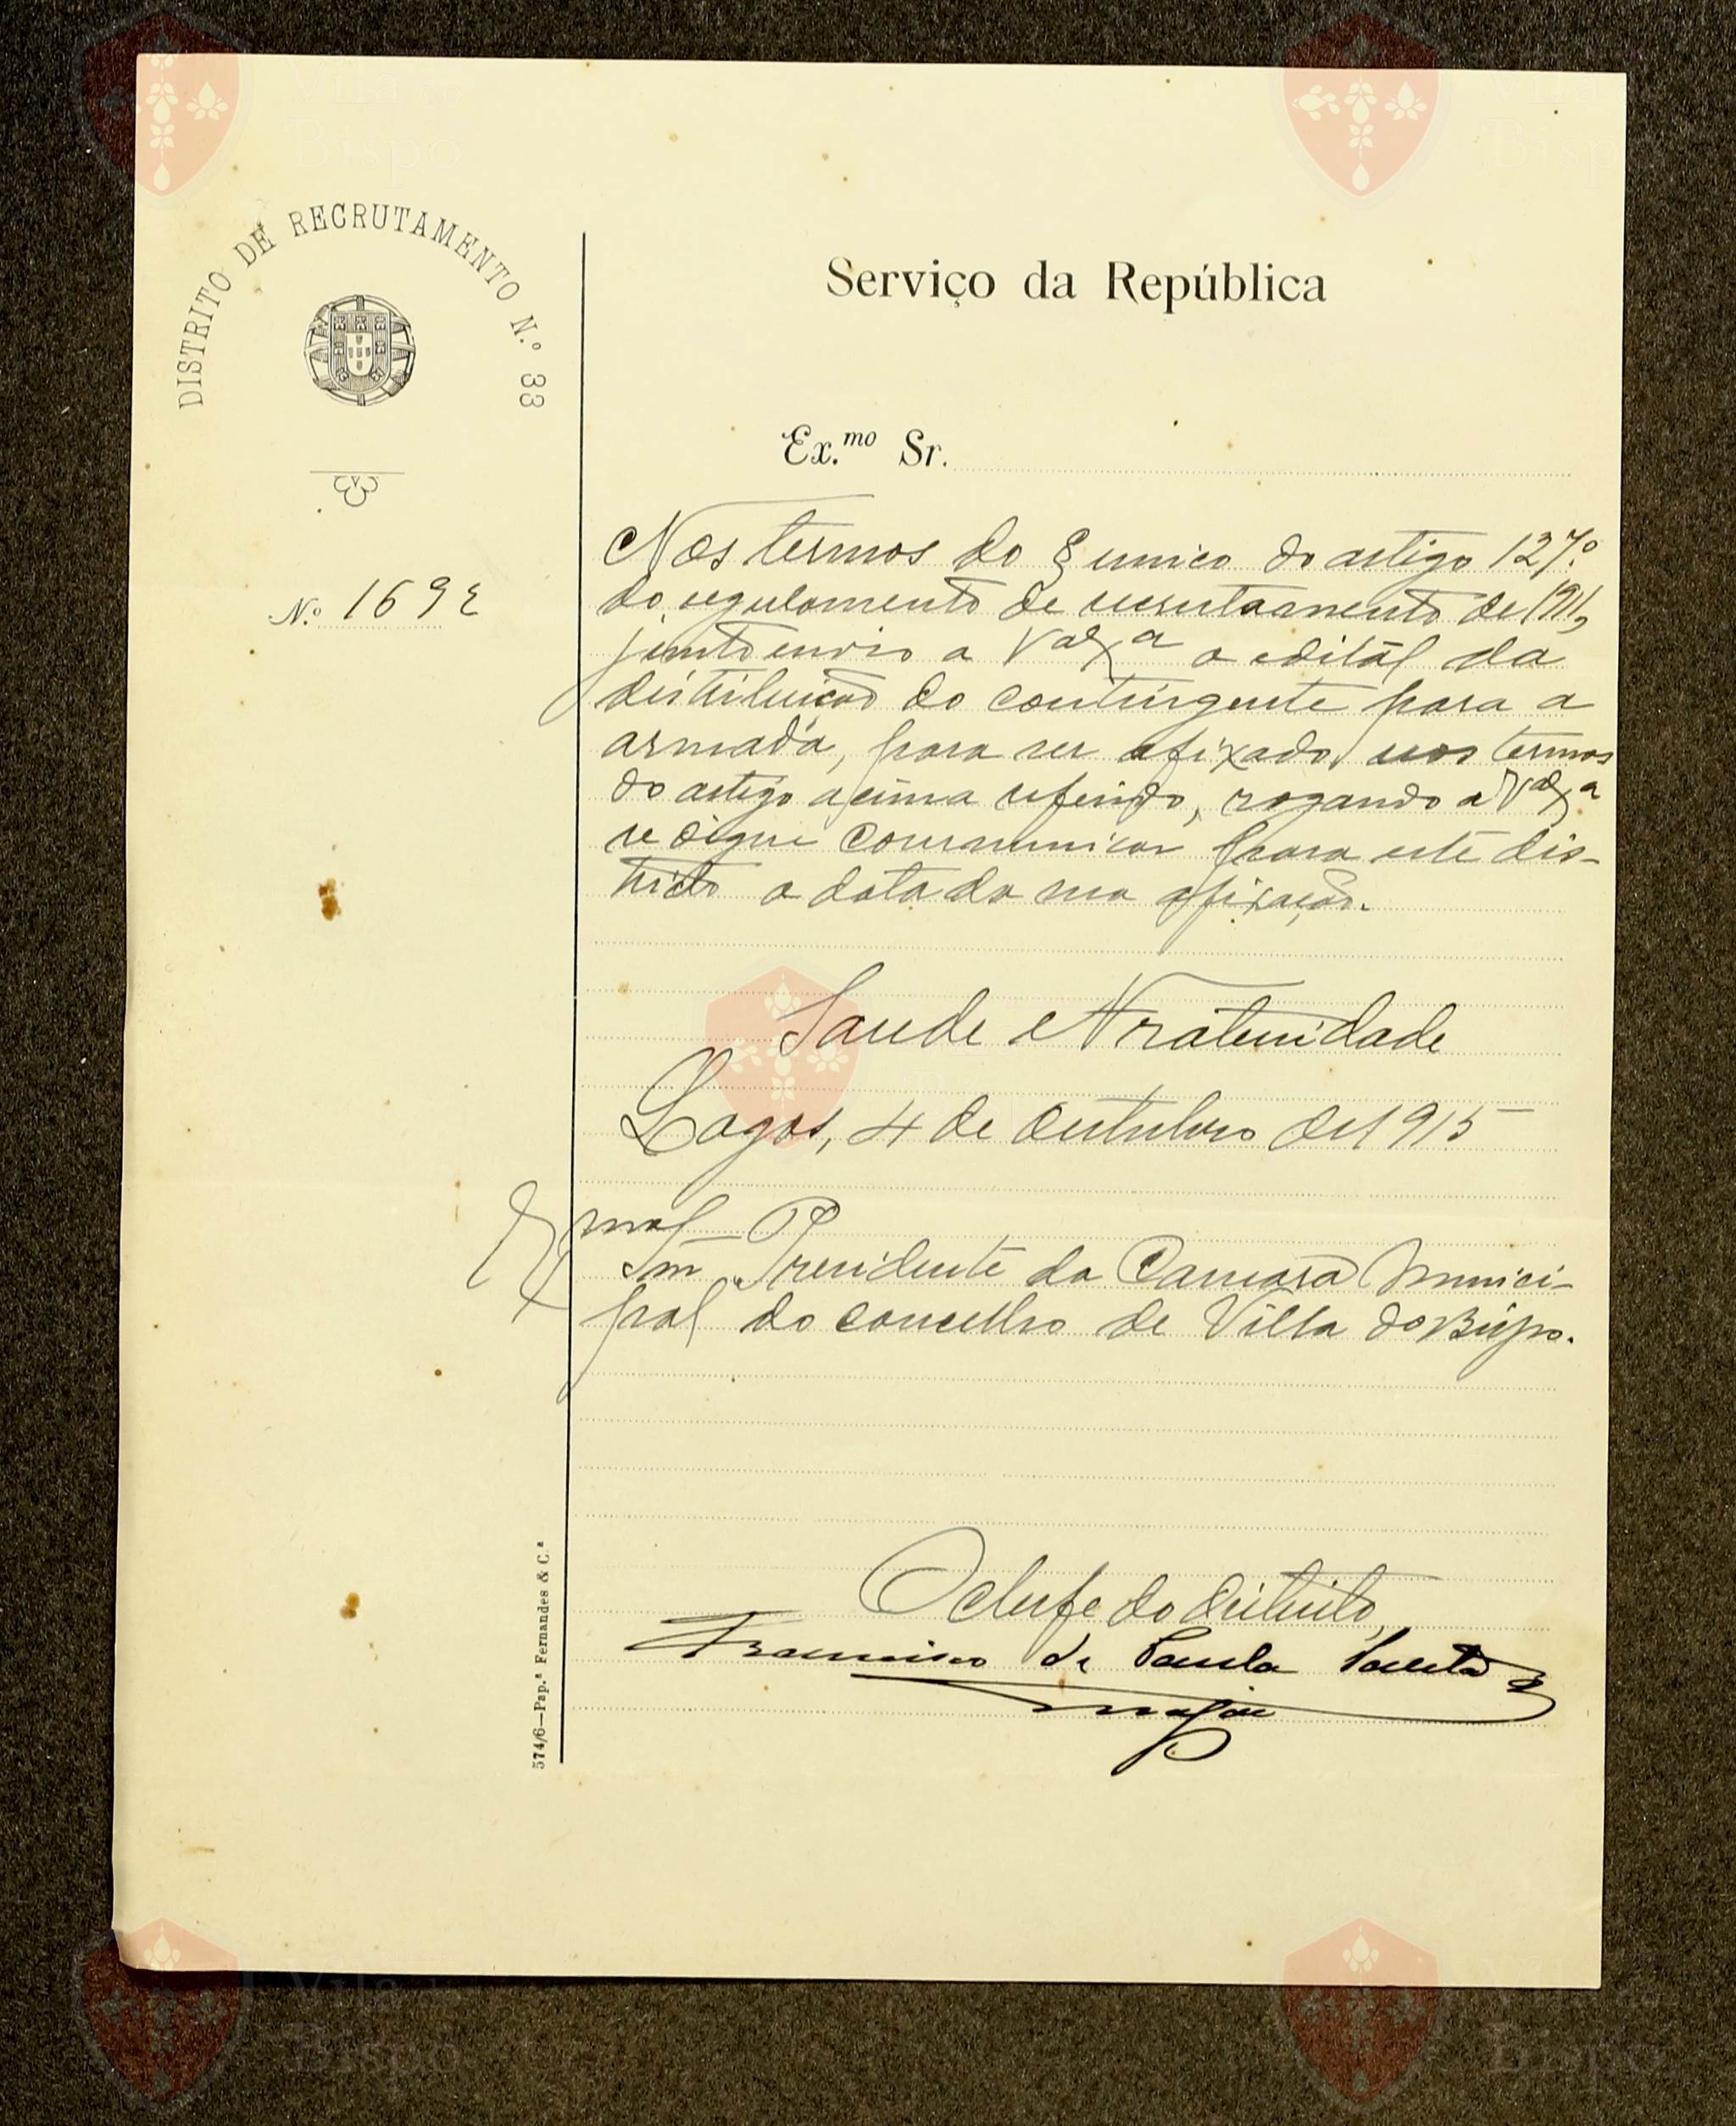 DISTRITO DE RECRUTAMENTO N.º 33
Serviço da República
Ex.mo Sr.
N.º 1692
Nos termos do § unico do artigo 127º
do regulamento de recrutamento de 1911,
junto envio a V Exª o edital da
distribuição do contingente para a
armada, para ser afixado nos termos
do artigo acima referido, rogando a V Exª
se digne communicar para este dis-
trito a data da sua afixação.
Saude e Fraternidade
Lagos, 4 de outubro de 1915
Exmo
Snr Presidente da Camara Munici-
pal do concelho de Villa do Bispo.
O chefe do distrito,
Francisco de Paula
major
574/6—Pap.ª Fernandes & C.ª
Vila do
Bispo